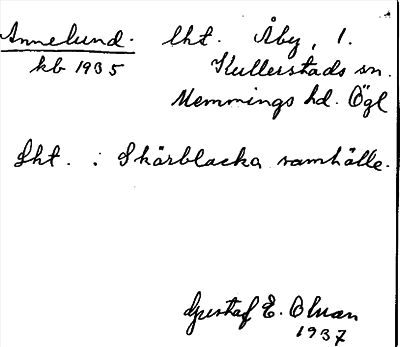 Annelund. lht. Åby, 1.
kb 1935 Kullerstads sn.
Memmings hd. Ögl
Lht. : Skärblacka samhälle.
Gustaf E. Olsson
1937